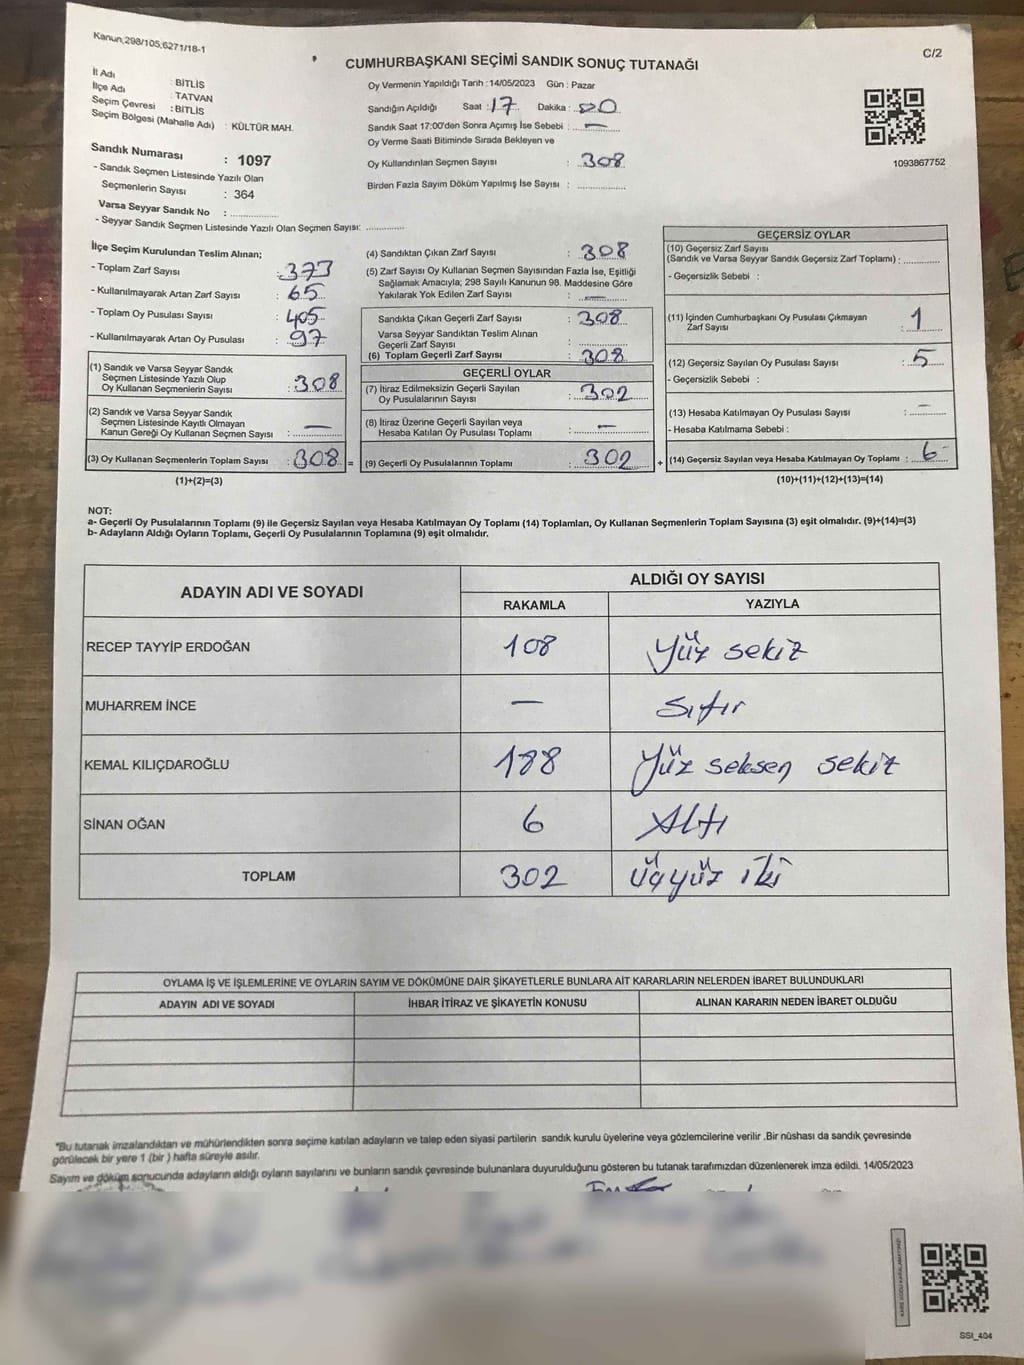 Kanun;298/105;6271/18-1
C/2
CUMHURBAŞKANI SEÇİMİ SANDIK SONUÇ TUTANAĞI
İl Adı : BİTLİS
İlçe Adı : TATVAN
Seçim Çevresi : BİTLİS
Seçim Bölgesi (Mahalle Adı) : KÜLTÜR MAH.
Sandık Numarası : 1097
- Sandık Seçmen Listesinde Yazılı Olan
Seçmenlerin Sayısı : 364
Varsa Seyyar Sandık No : ..............
- Seyyar Sandık Seçmen Listesinde Yazılı Olan Seçmen Sayısı: ............
Oy Vermenin Yapıldığı Tarih : 14/05/2023 Gün : Pazar
Sandığın Açıldığı Saat : 17 Dakika : 00
Sandık Saat 17:00'den Sonra Açımış İse Sebebi : —
Oy Verme Saati Bitiminde Sırada Bekleyen ve
Oy Kullandırılan Seçmen Sayısı : 308
Birden Fazla Sayım Döküm Yapılmış İse Sayısı : ..............
1093867752
İlçe Seçim Kurulundan Teslim Alınan;
- Toplam Zarf Sayısı : 373
- Kullanılmayarak Artan Zarf Sayısı : 65
- Toplam Oy Pusulası Sayısı : 405
- Kullanılmayarak Artan Oy Pusulası : 97
(1) Sandık ve Varsa Seyyar Sandık
Seçmen Listesinde Yazılı Olup
Oy Kullanan Seçmenlerin Sayısı : 308
(2) Sandık ve Varsa Seyyar Sandık
Seçmen Listesinde Kayıtlı Olmayan
Kanun Gereği Oy Kullanan Seçmen Sayısı : —
(3) Oy Kullanan Seçmenlerin Toplam Sayısı : 308 =
(1)+(2)=(3)
(4) Sandıktan Çıkan Zarf Sayısı : 308
(5) Zarf Sayısı Oy Kullanan Seçmen Sayısından Fazla İse, Eşitliği
Sağlamak Amacıyla; 298 Sayılı Kanunun 98. Maddesine Göre
Yakılarak Yok Edilen Zarf Sayısı : —
Sandıkta Çıkan Geçerli Zarf Sayısı : 308
Varsa Seyyar Sandıktan Teslim Alınan
Geçerli Zarf Sayısı : ..............
(6) Toplam Geçerli Zarf Sayısı : 308
GEÇERLİ OYLAR
(7) İtiraz Edilmeksizin Geçerli Sayılan
Oy Pusulalarının Sayısı : 302
(8) İtiraz Üzerine Geçerli Sayılan veya
Hesaba Katılan Oy Pusulası Toplamı : —
(9) Geçerli Oy Pusulalarının Toplamı : 302 +
GEÇERSİZ OYLAR
(10) Geçersiz Zarf Sayısı
(Sandık ve Varsa Seyyar Sandık Geçersiz Zarf Toplamı) : ............
- Geçersizlik Sebebi :
(11) İçinden Cumhurbaşkanı Oy Pusulası Çıkmayan
Zarf Sayısı : 1
(12) Geçersiz Sayılan Oy Pusulası Sayısı : 5
- Geçersizlik Sebebi :
(13) Hesaba Katılmayan Oy Pusulası Sayısı : —
- Hesaba Katılmama Sebebi :
(14) Geçersiz Sayılan veya Hesaba Katılmayan Oy Toplamı : 6
(10)+(11)+(12)+(13)=(14)
NOT:
a- Geçerli Oy Pusulalarının Toplamı (9) ile Geçersiz Sayılan veya Hesaba Katılmayan Oy Toplamı (14) Toplamları, Oy Kullanan Seçmenlerin Toplam Sayısına (3) eşit olmalıdır. (9)+(14)=(3)
b- Adayların Aldığı Oyların Toplamı, Geçerli Oy Pusulalarının Toplamına (9) eşit olmalıdır.
ADAYIN ADI VE SOYADI
ALDIĞI OY SAYISI
RAKAMLA YAZIYLA
RECEP TAYYİP ERDOĞAN 108 Yüz sekiz
MUHARREM İNCE — Sıfır
KEMAL KILIÇDAROĞLU 188 Yüz seksen sekiz
SİNAN OĞAN 6 Altı
TOPLAM 302 üçyüz iki
OYLAMA İŞ VE İŞLEMLERİNE VE OYLARIN SAYIM VE DÖKÜMÜNE DAİR ŞİKAYETLERLE BUNLARA AİT KARARLARIN NELERDEN İBARET BULUNDUKLARI
ADAYIN ADI VE SOYADI İHBAR İTİRAZ VE ŞİKAYETİN KONUSU ALINAN KARARIN NEDEN İBARET OLDUĞU
*Bu tutanak imzalandıktan ve mühürlendikten sonra seçime katılan adayların ve talep eden siyasi partilerin sandık kurulu üyelerine veya gözlemcilerine verilir .Bir nüshası da sandık çevresinde
görülecek bir yere 1 (bir ) hafta süreyle asılır.
Sayım ve döküm sonucunda adayların aldığı oyların sayılarını ve bunların sandık çevresinde bulunanlara duyurulduğunu gösteren bu tutanak tarafımızdan düzenlenerek imza edildi. 14/05/2023
SSI_404